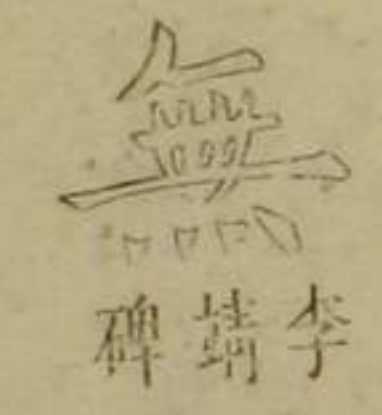 無
李靖碑